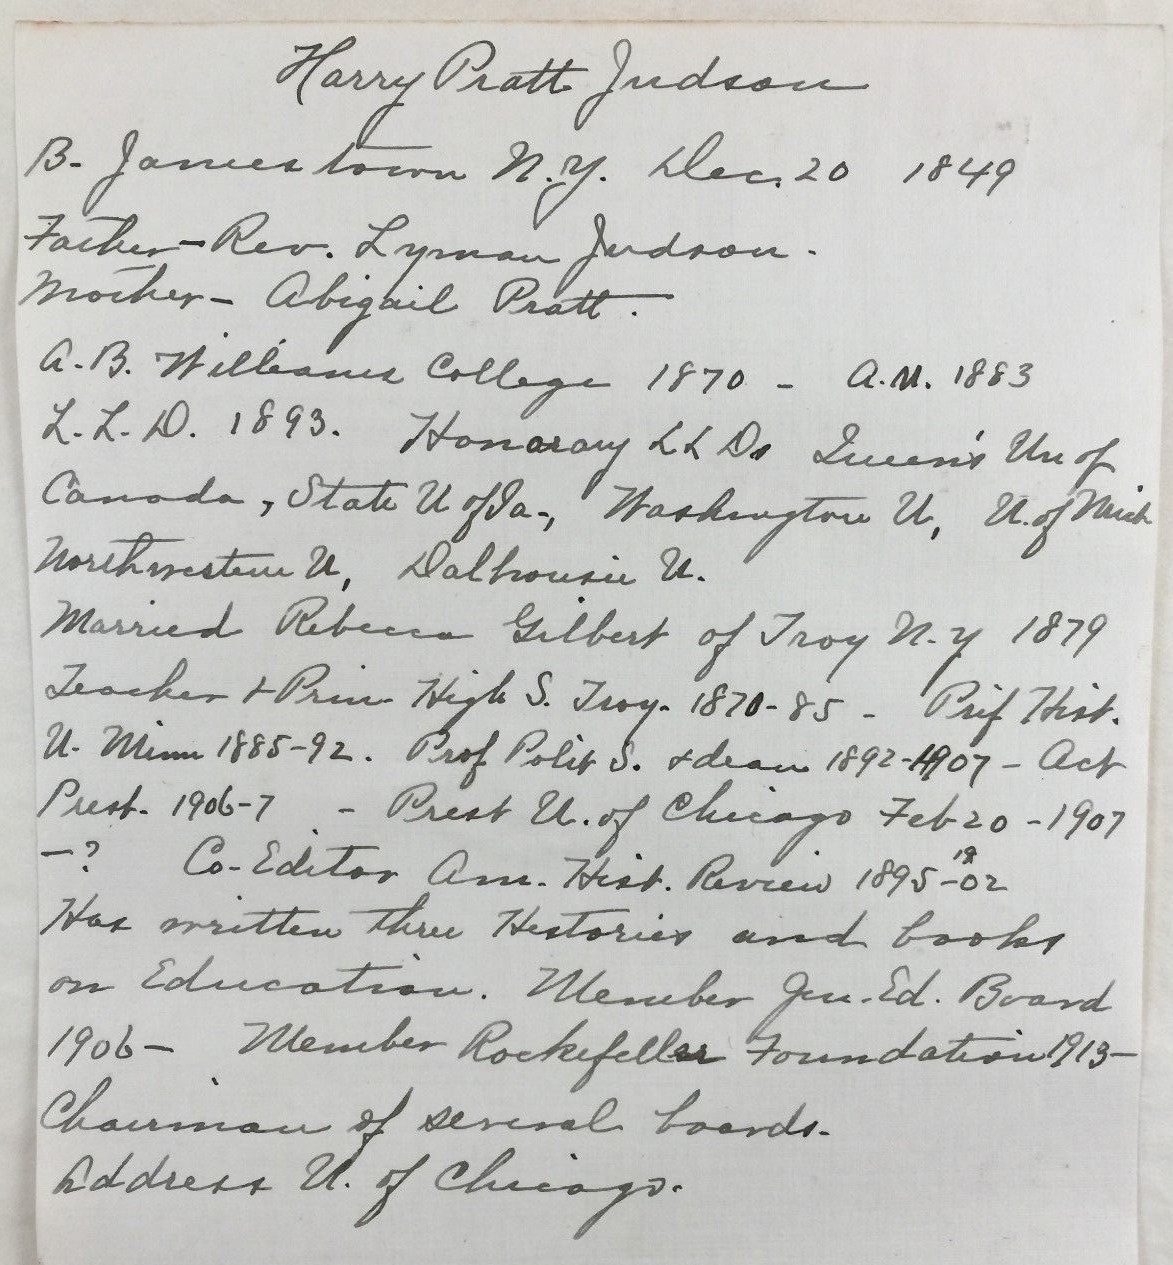 Harry Pratt Judson
B. Jamestown N.Y. Dec. 20 1849
Father - Rev. Lyman Judson.
Mother - Abigail Pratt.
A.B. Williams College 1870 - A.M. 1883
L.L.D. 1893. Honorary LLDs Queen's Un of
Canada, State U of Ia-, Washington U, U. of Mich
Northwestern U, Dalhousie U.
Married Rebecca Gilbert of Troy N.Y 1879
Teacher & Prin High S. Troy. 1870-85 - Prof Hist.
U. Minn 1885-92. Prof Polit S. & dean 1892-1907 - Act
Prest. 1906-7 - Prest U. of Chicago Feb 20 - 1907
-? Co-Editor Am. Hist. Review 1895-1902
Has written three Histories and books
on Education. Member Gen. Ed. Board
1906- Member Rockefeller Foundation 1913-
Chairman of several boards.
Address U. of Chicago.